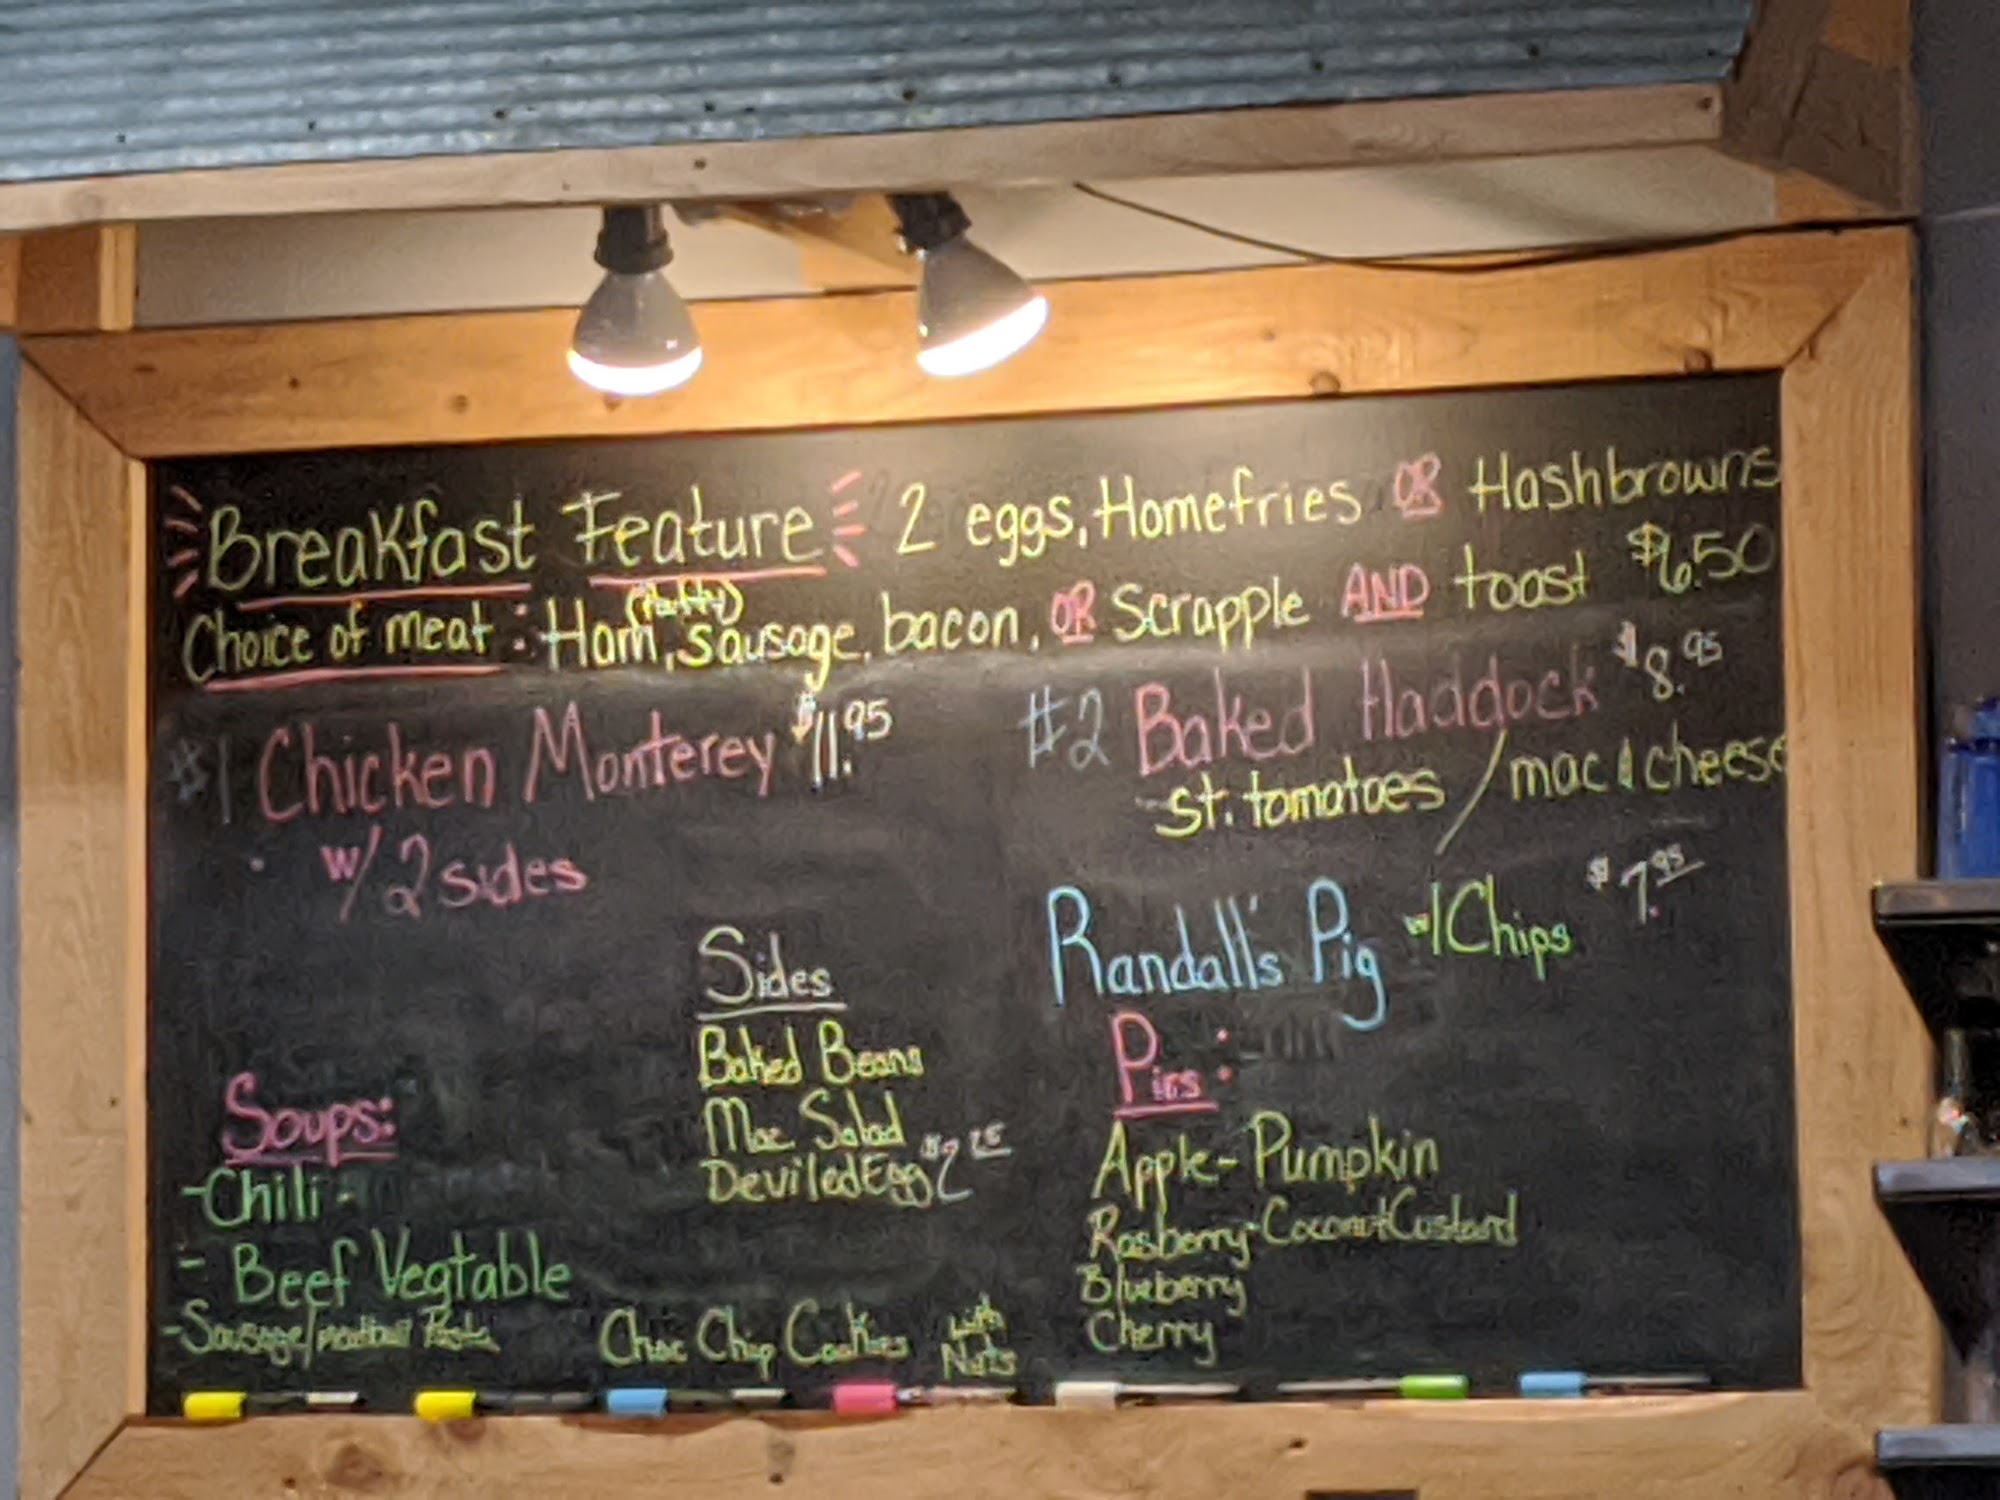 Breakfast Feature 2 eggs, Homefries OR Hashbrowns
Choice of meat: Ham, (patty) sausage, bacon, OR Scrapple AND toast $6.50
#1 Chicken Monterey $11.95
w/ 2 sides
#2 Baked Haddock $8.95
st. tomatoes / mac & cheese
Randall's Pig w/ Chips $7.95
Sides
Baked Beans
Mac Salad
Deviled Egg $2
Soups:
-Chili-
- Beef Vegtable
-Sausage/meatball
Choc Chip Cookies with
Nuts
Pies:
Apple- Pumpkin
Rasberry-Coconut Custard
Blueberry
Cherry